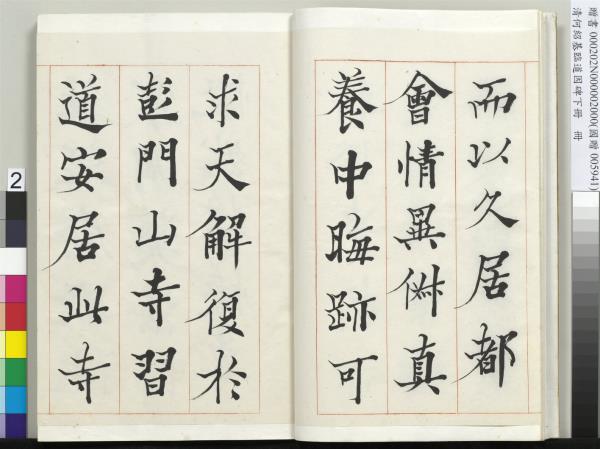 而以久居都
會情異倂真
養中晦跡可
求天解復於
彭門山寺習
道安居此寺
贈書 000202N0000002000(國贈 005941)
清何紹基臨道因碑下冊 冊
2